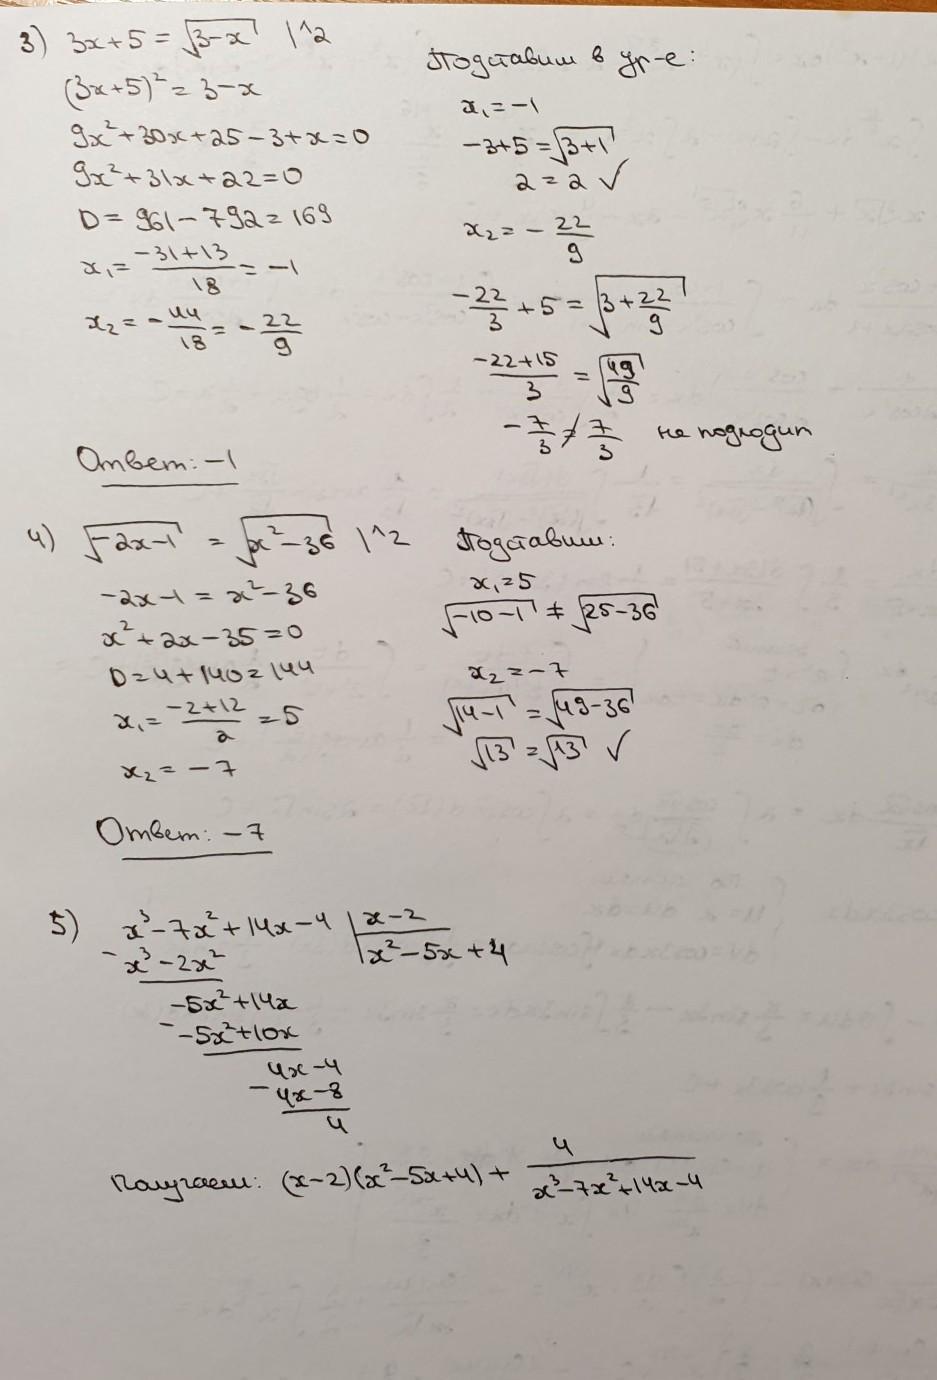 3) 3x+5 = √(3-x) |^2
(3x+5)² = 3-x
9x²+30x+25-3+x=0
9x²+31x+22=0
D = 961-792=169
x₁ = (-31+13)/18 = -1
x₂ = -44/18 = -22/9
Ответ: -1
Подставим в ур-е:
x₁ = -1
-3+5 = √(3+1)
2 = 2 ✓
x₂ = -22/9
-22/3 + 5 = √(3+22/9)
(-22+15)/3 = √(49/9)
-7/3 ≠ 7/3 не подходит
4) √(-2x-1) = √(x²-36) |^2
-2x-1 = x²-36
x²+2x-35=0
D=4+140=144
x₁ = (-2+12)/2 = 5
x₂ = -7
Ответ: -7
Подставим:
x₁=5
√(-10-1) ≠ √(25-36)
x₂ = -7
√(14-1) = √(49-36)
√13 = √13 ✓
5) x³-7x²+14x-4 | x-2
- x³-2x² | x²-5x+4
-5x²+14x
- -5x²+10x
4x-4
- 4x-8
4
Получаем: (x-2)(x²-5x+4) + 4/(x³-7x²+14x-4)